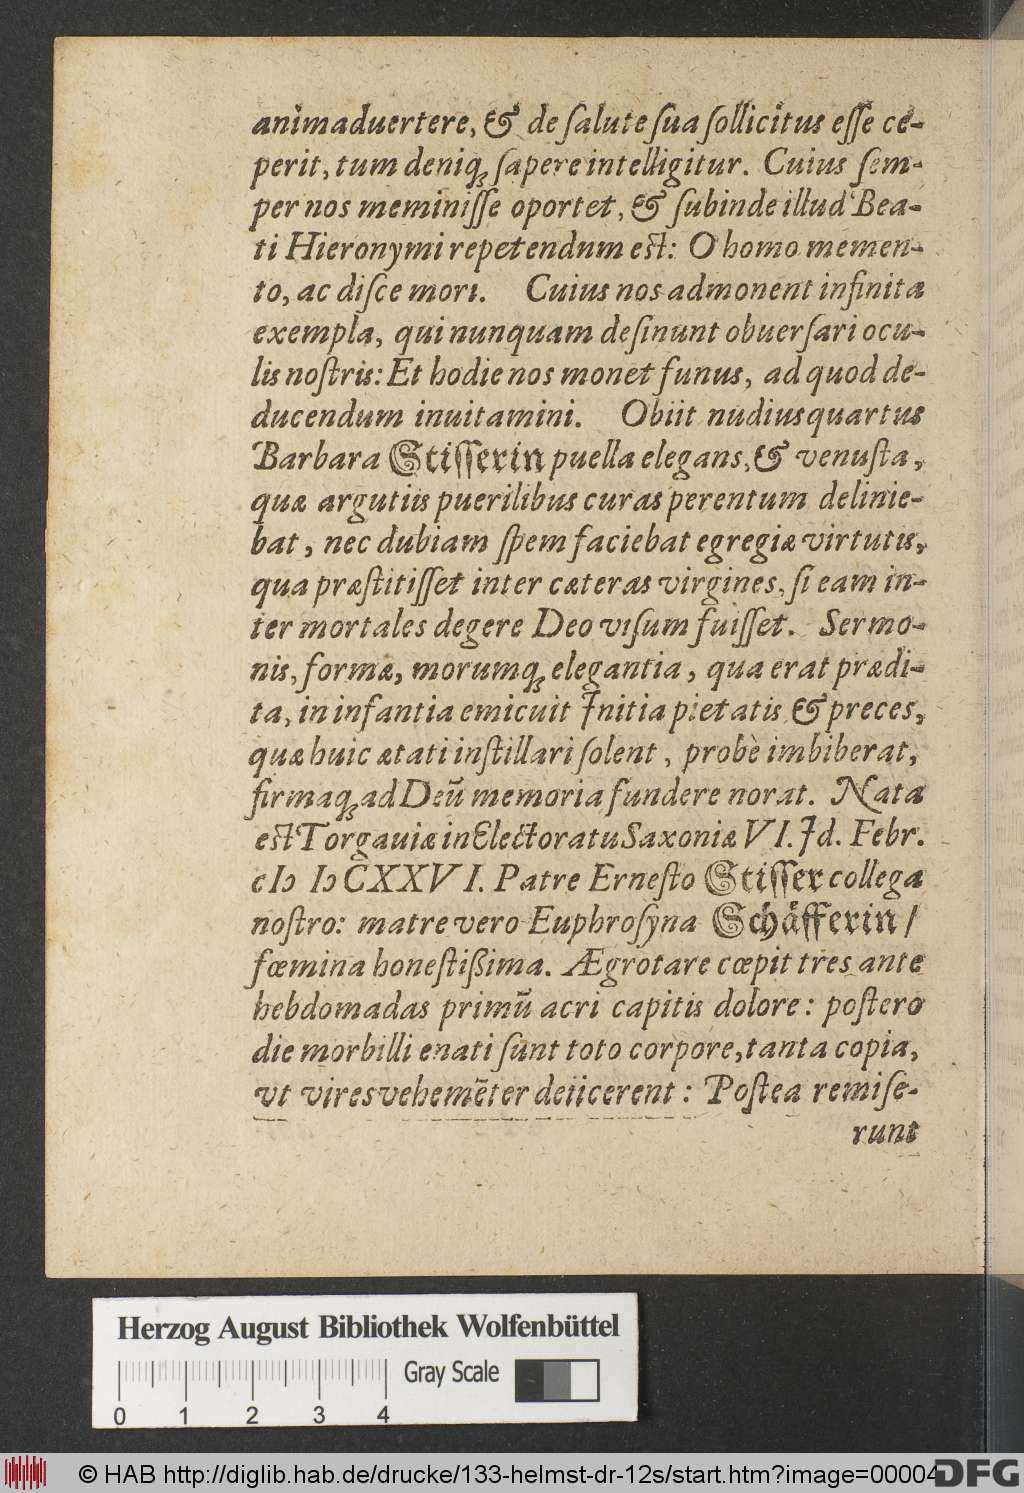 animaduertere, & de ſalute ſua ſollicitus eſſe ce-
perit, tum deniq; ſapere intelligitur. Cuius ſem-
per nos meminiſſe oportet, & ſubinde illud Bea-
ti Hieronymi repetendum est: O homo memen-
to, ac diſce mori. Cuius nos admonent infinita
exempla, qui nunquam deſinunt obuerſari ocu-
lis noſtris: Et hodie nos monet funus, ad quod de-
ducendum inuitamini. Obiit nudiusquartus
Barbara Stiſſerin puella elegans, & venuſta,
quæ argutiis puerilibus curas perentum delinie-
bat, nec dubiam ſpem faciebat egregiæ virtutis,
qua præſtitiſſet inter cæteras virgines, ſi eam in-
ter mortales degere Deo viſum fuiſſet. Sermo-
nis, formæ, morumq; elegantia, qua erat prædi-
ta, in infantia emicuit Initia pietatis & preces,
quæ huic ætati inſtillari ſolent, probè imbiberat,
firmaq; ad Deũ memoria fundere norat. Nata
est Torgaviæ in Electoratu Saxoniæ VI. Id. Febr.
cIↄ Iↄ CXXVI. Patre Erneſto Stiſſer collega
noſtro: matre vero Euphroſyna Schäfferin /
fœmina honeſtißima. Ægrotare cœpit tres ante
hebdomadas primũ acri capitis dolore: poſtero
die morbilli enati ſunt toto corpore, tanta copia,
vt vires vehemẽter deiicerent: Poſtea remiſe-
runt
Herzog August Bibliothek Wolfenbüttel
Gray Scale
0 1 2 3 4
© HAB http://diglib.hab.de/drucke/133-helmst-dr-12s/start.htm?image=00004
DFG